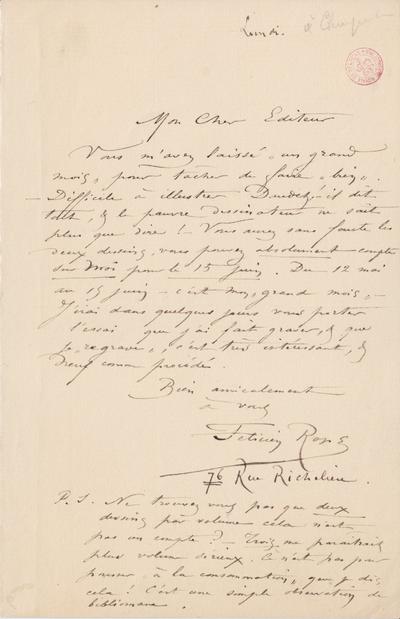 Lundi.
Mon Cher Editeur
Vous m'avez laissé "un grand
mois" pour tacher de "faire bien".
— Difficile à illustrer Daudet! il dit
tout, & le pauvre dessinateur ne sait
plus que dire! — Vous aurez sans faute les
deux dessins, vous pouvez absolument compter
sur moi pour le 15 juin. Du 12 mai
au 15 juin — c'est mon "grand mois" —
J'irai dans quelques jours vous porter
l'essai que j'ai fait graver, & que
je "regrave", c'est très intéressant, &
neuf comme procédé.
Bien amicalement
à vous
Félicien Rops
76 Rue Richelieu.
P.S. Ne trouvez vous pas que deux
dessins par volume cela n'est
pas un compte? — Trois me paraitrait
plus volume sérieux. Ce n'est pas pour
pousser "à la consommation" que je dis
cela! C'est une simple observation de
bibliomane.